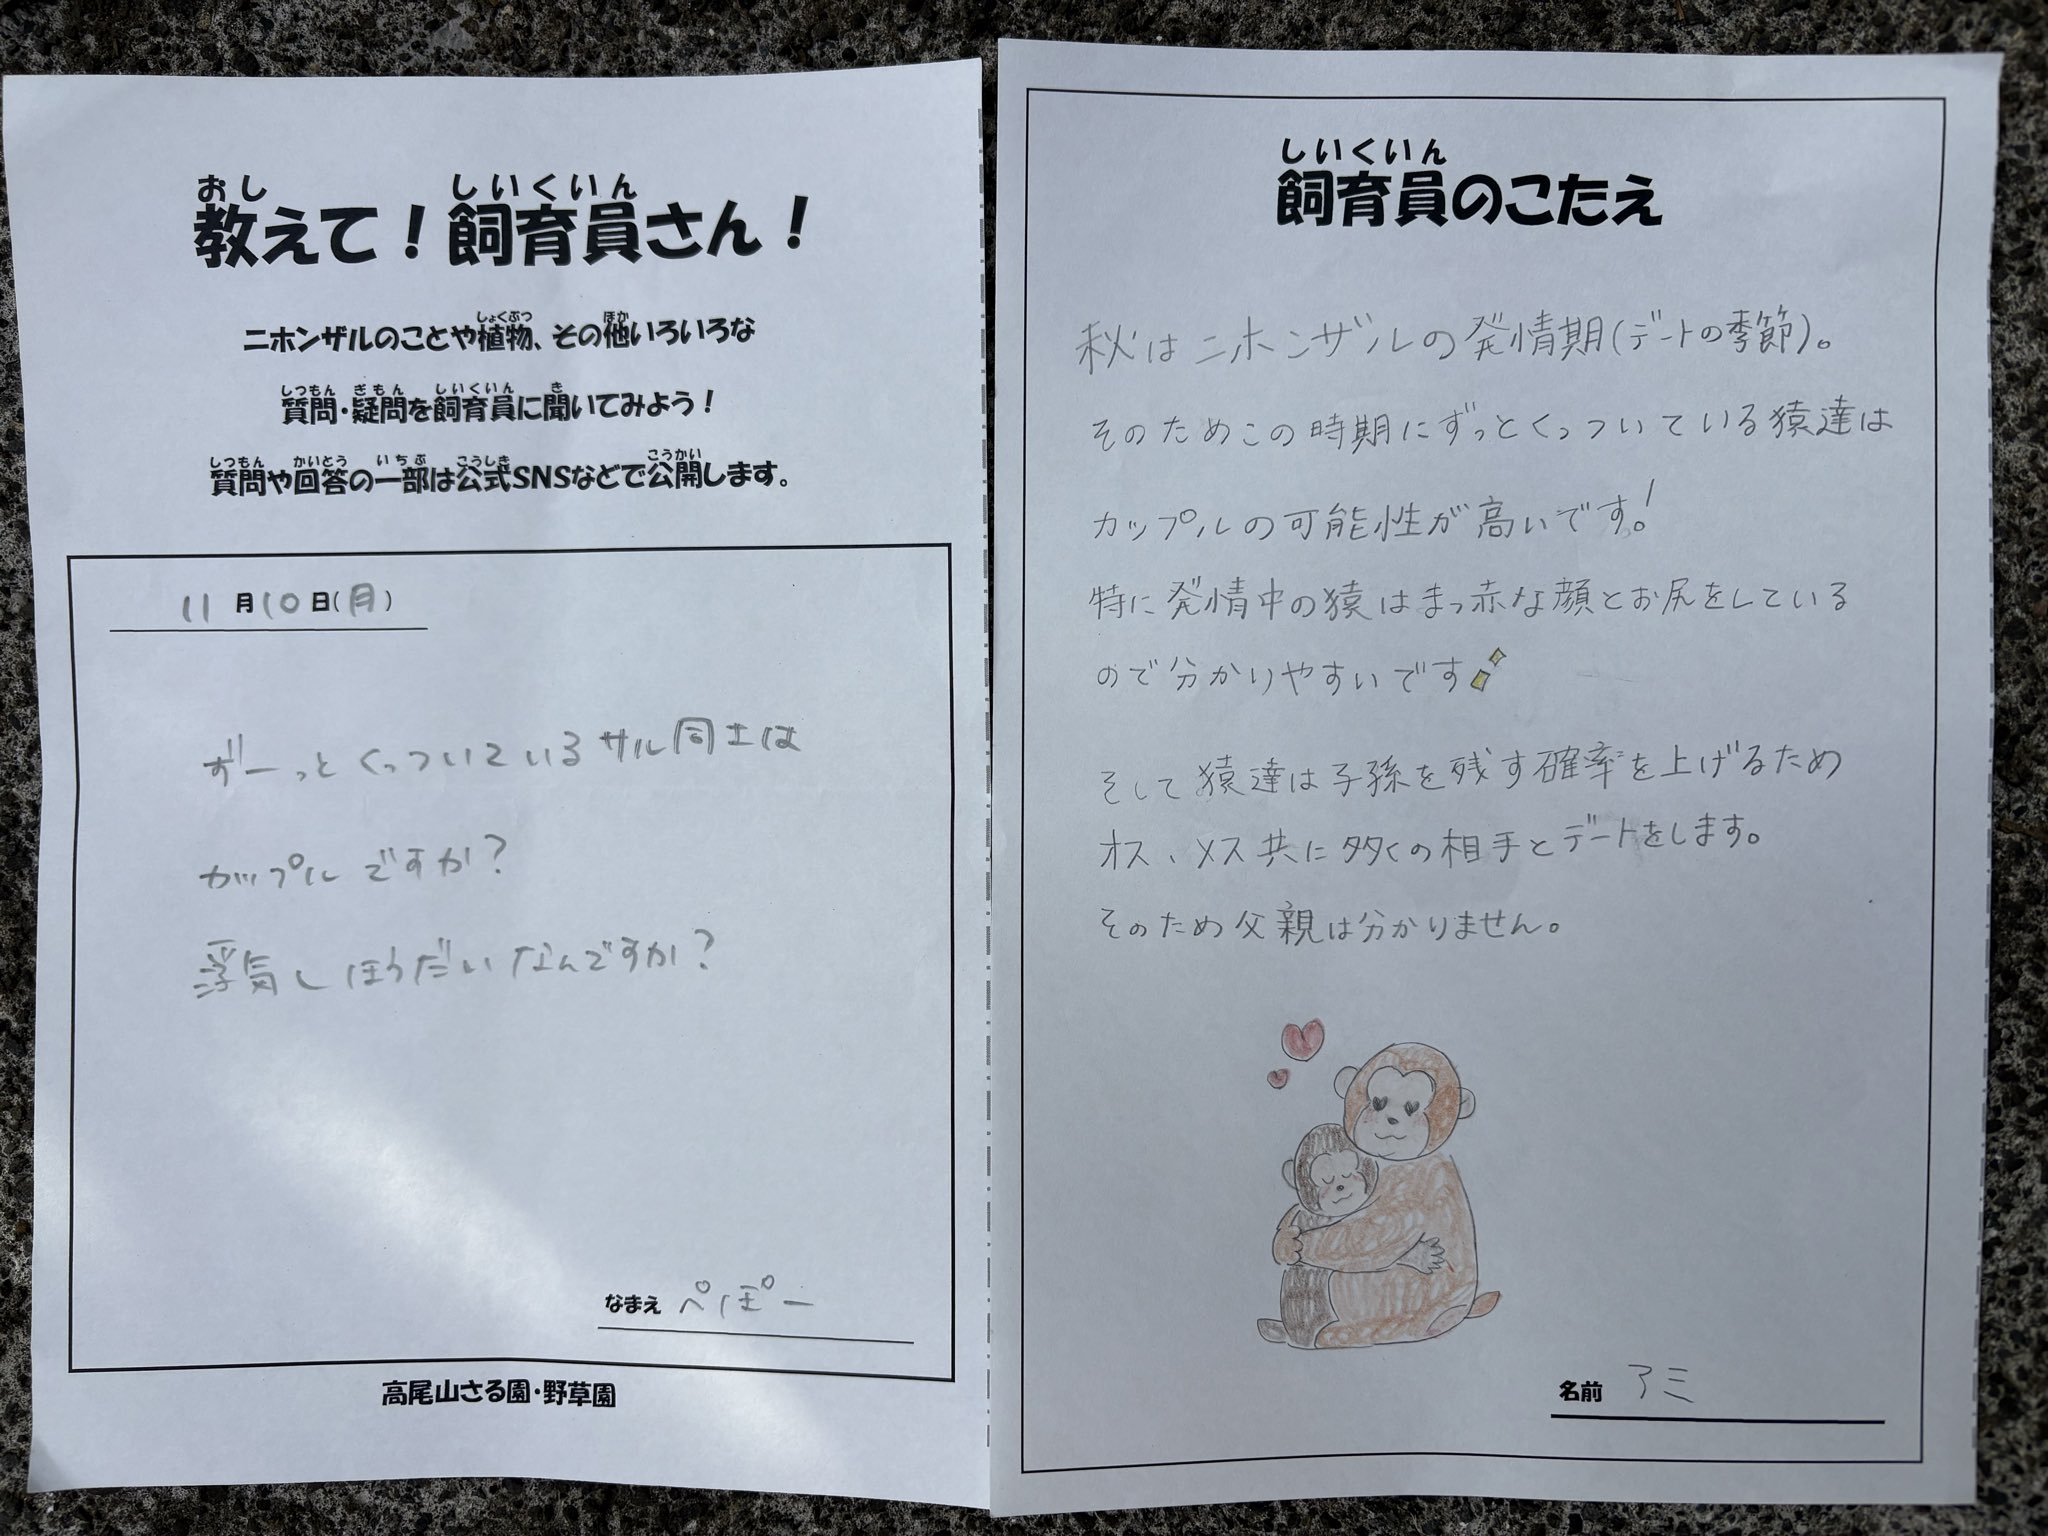 おし しいくいん
教えて！飼育員さん！
しょくぶつ ほか
ニホンザルのことや植物、その他いろいろな
しつもん ぎもん しいくいん き
質問・疑問を飼育員に聞いてみよう！
しつもん かいとう いちぶ こうしき こうかい
質問や回答の一部は公式SNSなどで公開します。
11月10日(月)
ずーっとくっついているサル同士は
カップルですか？
浮気しほうだいなんですか？
なまえ ぺぽー
高尾山さる園・野草園
しいくいん
飼育員のこたえ
秋はニホンザルの発情期(デートの季節)。
そのためこの時期にずっとくっついている猿達は
カップルの可能性が高いです!
特に発情中の猿はまっ赤な顔とお尻をしている
ので分かりやすいです
そして猿達は子孫を残す確率を上げるため
オス、メス共に多くの相手とデートをします。
そのため父親は分かりません。
名前 アミ